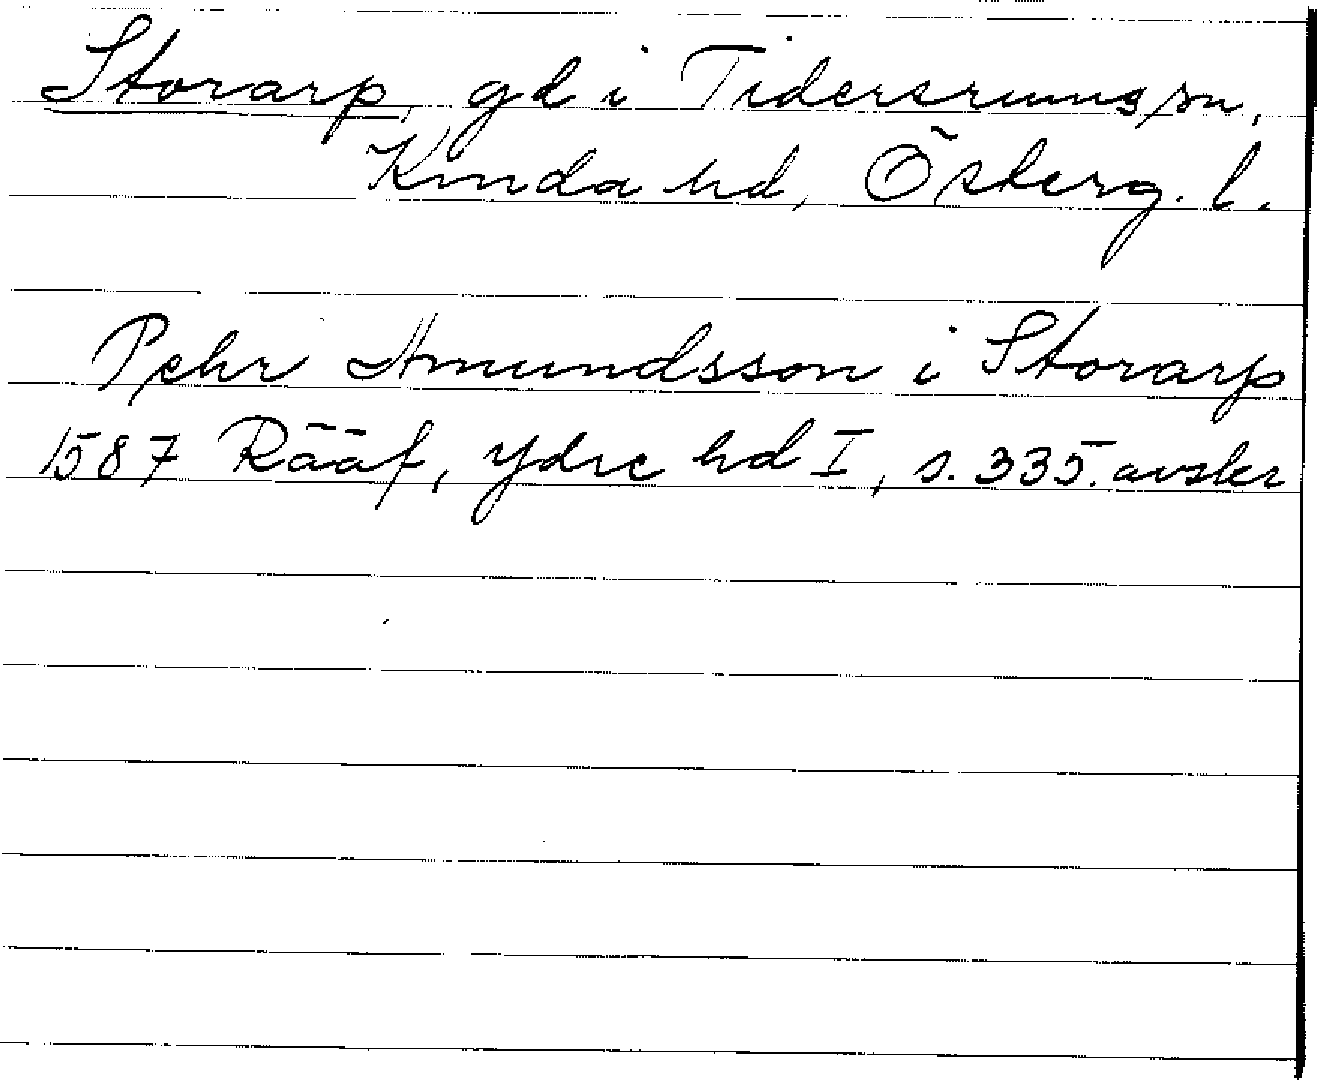 Storarp, gd i Tidersrums sn,
Kinda hd, Österg. l.
Pehr Amundsson i Storarp
1587 Rääf, Ydre hd I, s. 335. avskr